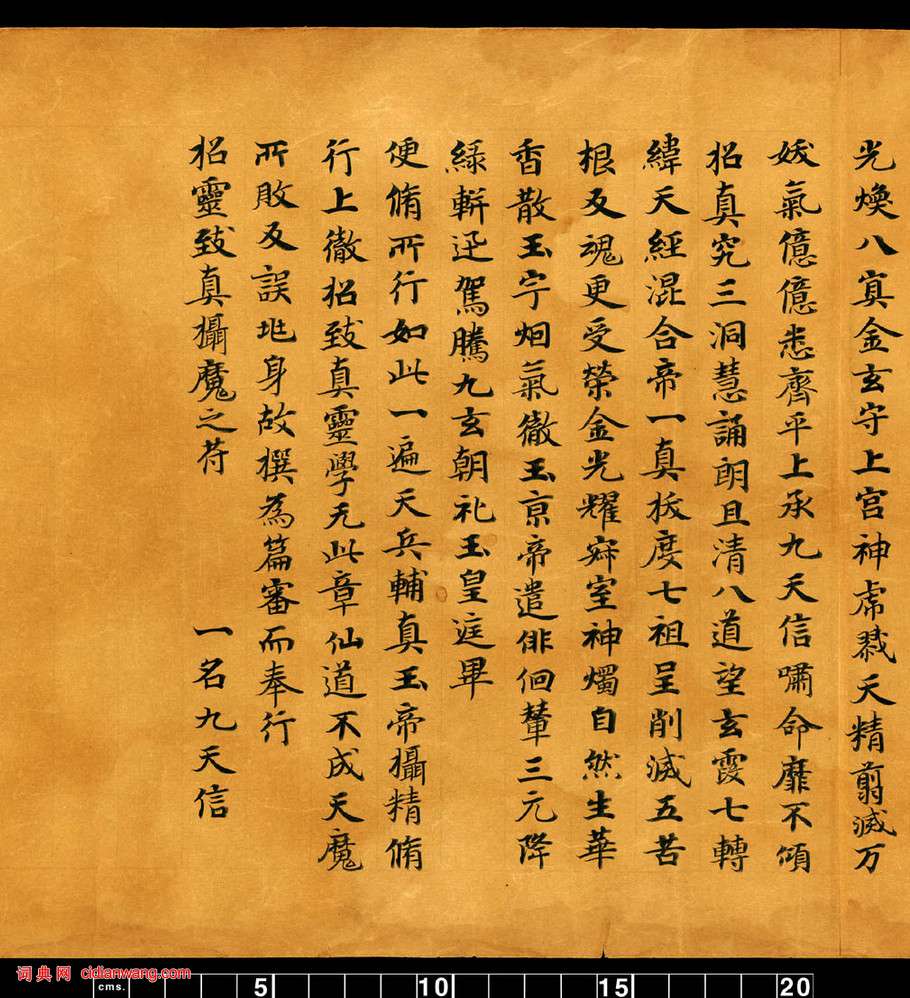 光煥八寘金玄守上宮神虎戮天精翦滅万
妖氣億億悉齊平上承九天信嘯命靡不傾
招真究三洞慧誦朗且清八道望玄霞七轉
緯天經混合帝一真拔度七祖呈削滅五苦
根反魂更受榮金光耀寐室神燭自然生華
香散玉宇烟氣徹玉京帝遣俳佪輦三元降
綠軿迅駕騰九玄朝礼玉皇庭畢
便脩所行如此一遍天兵輔真玉帝攝精脩
行上徹招致真靈學无此章仙道不成天魔
所敗反誤地身故撰為篇審而奉行
招靈致真攝魔之符 一名九天信
词典网 cidianwang.com
cms. 5 10 15 20